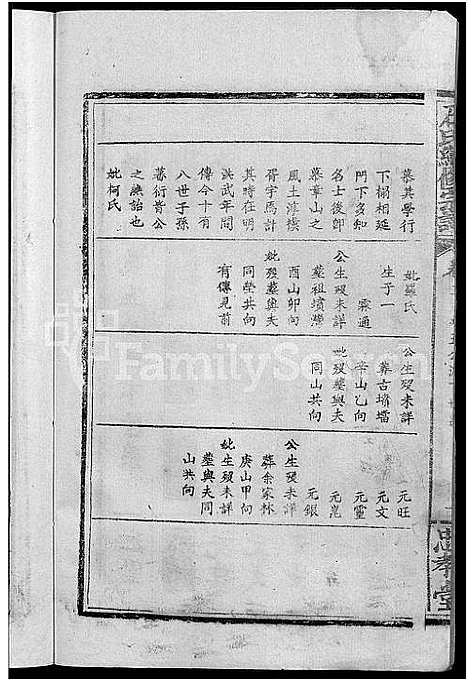 慕其學行
下榻相延
門下多知
名士後卽
慕章山之
風土淳樸
胥宇焉計
其時在明
洪武年間
傳今十有
八世子孫
蕃衍皆公
之燕詒也
妣柯氏
妣羅氏
生子一
霖通
公生歿未詳
葬祖墳灣
酉山卯向
妣歿葬與夫
同塋共向
有傳見前
公生歿未詳
葬古墈壋
辛山乙向
妣歿葬與夫
同山共向
元旺
元文
元靈
元崑
元銀
公生歿未詳
葬余家林
庚山甲向
妣生歿未詳
葬與夫同
山共向
忠孝堂
FamilySearch